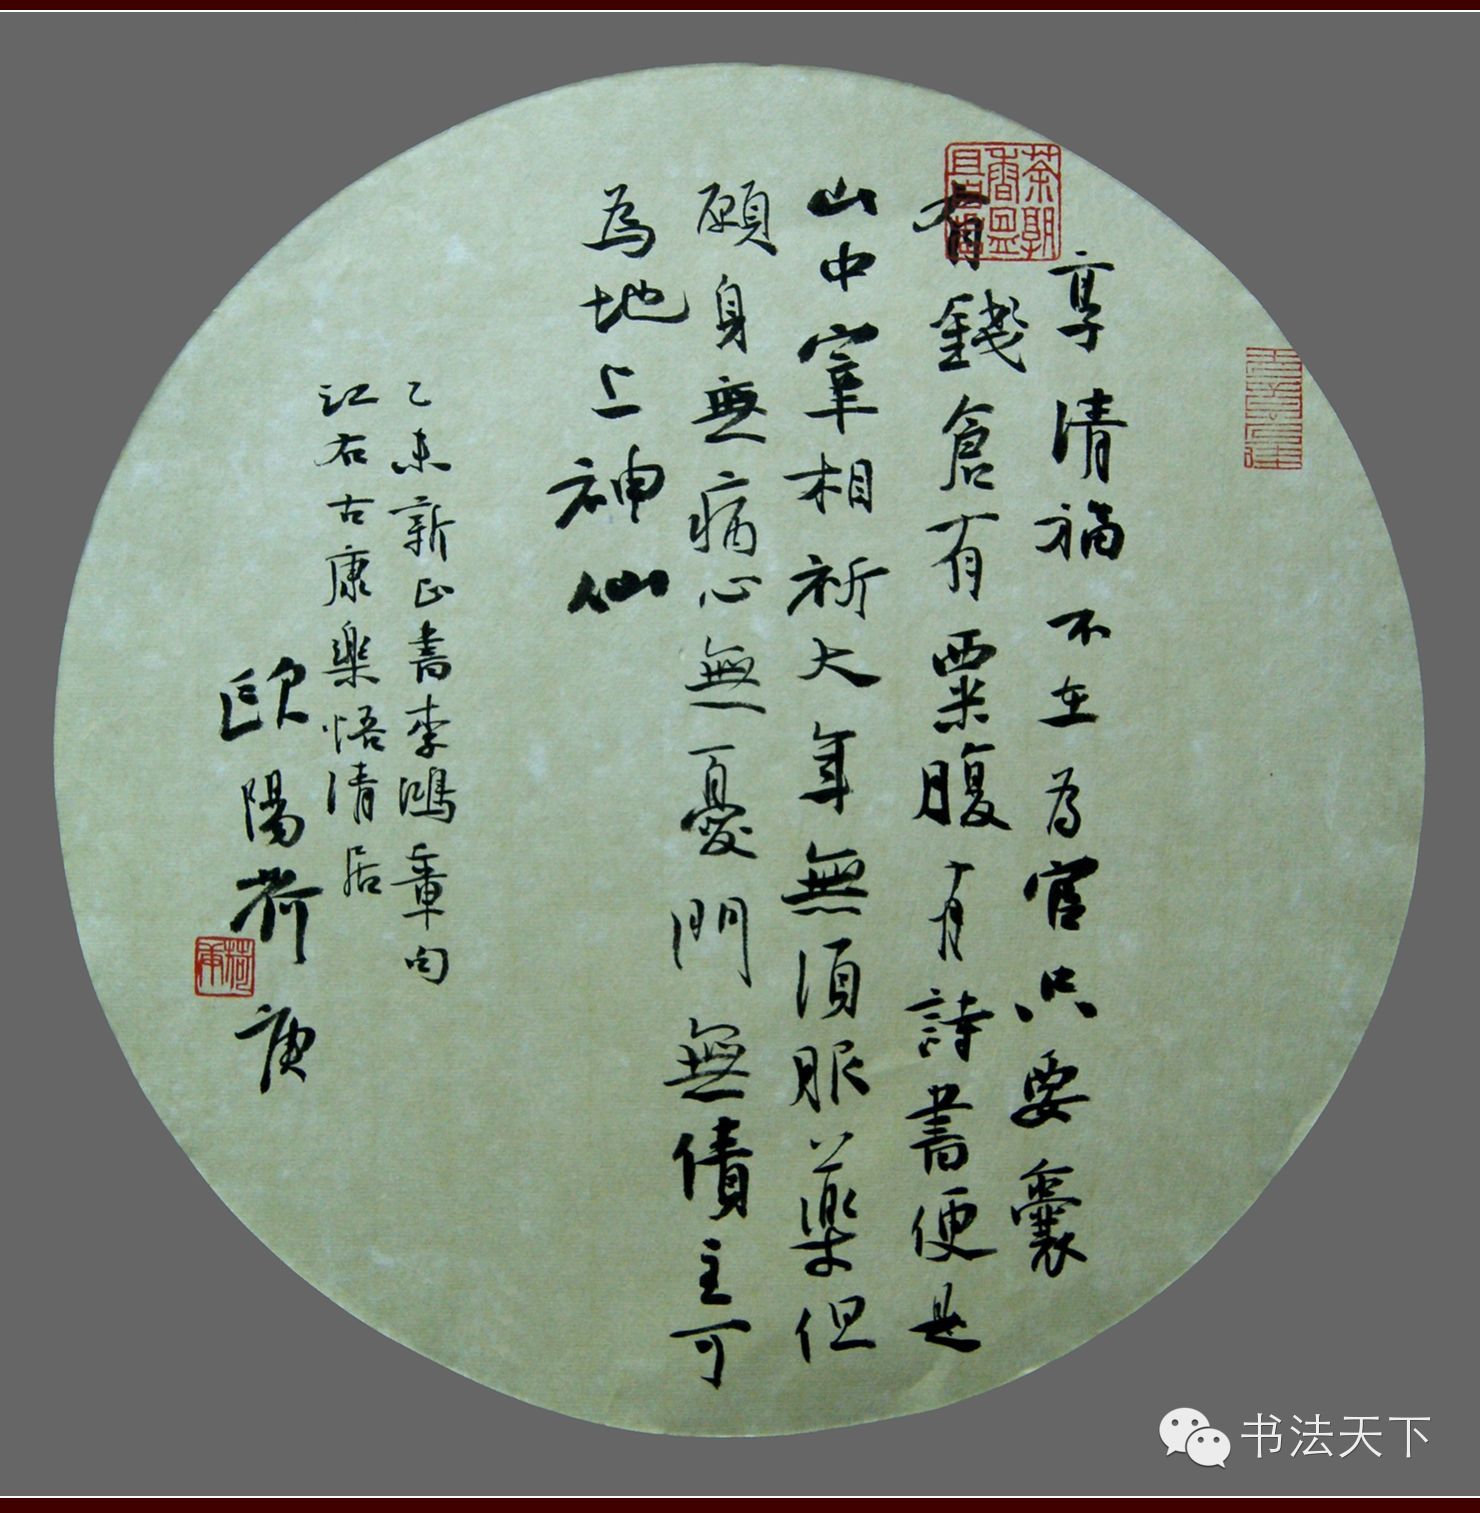 享清福不在為官只要囊
有錢倉有粟腹有詩書便是
山中宰相祈大年無須服藥但
願身無病心無憂門無債主可
為地上神仙
乙未新正書李鴻章句
江右古康樂悟清居
歐陽荷庚
荷庚
书法天下